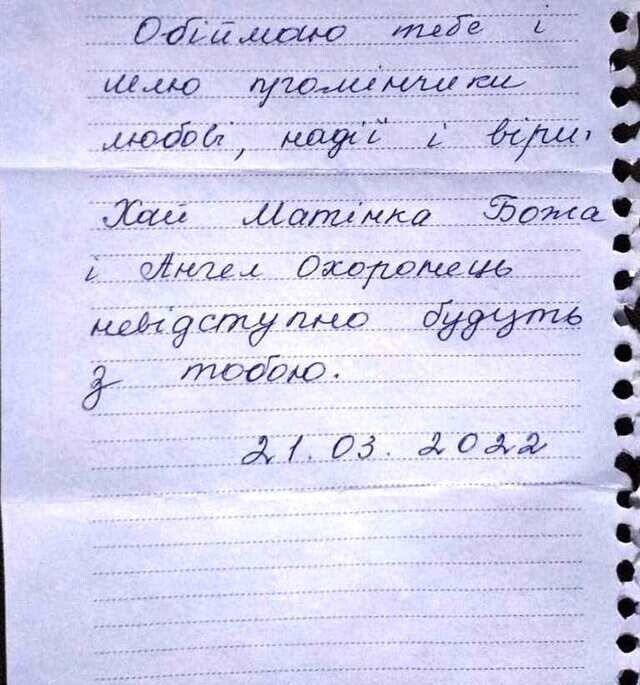 Обіймаю тебе і
шлю промінчики
любові, надії і віри.
Хай Матінка Божа
і Ангел Охоронець
невідступно будуть
з тобою.
21.03.2022